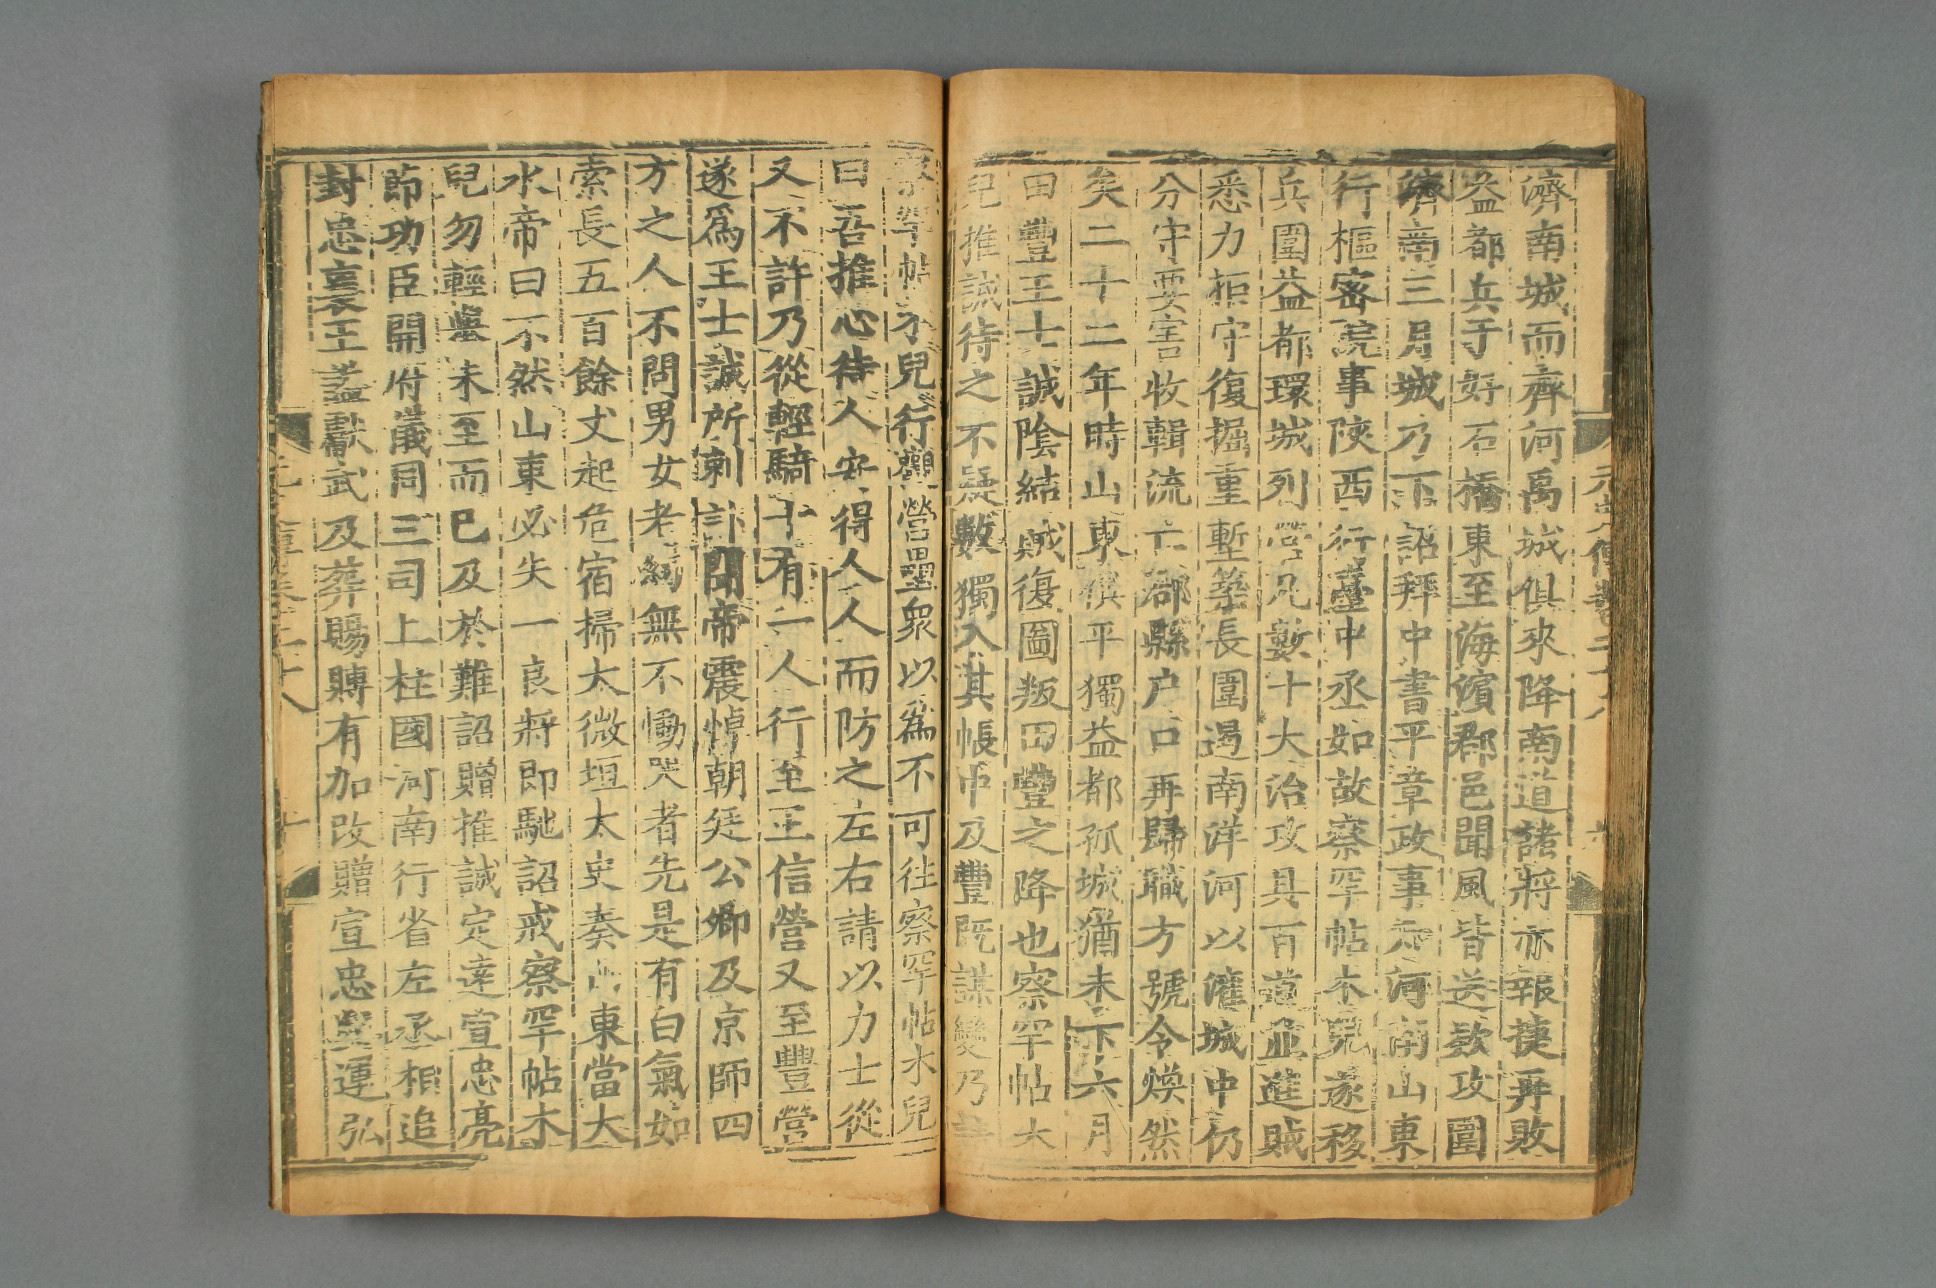 濟南城而齊河禹城俱來降南道諸將亦報捷再敗
益都兵于好石橋東至海濱郡邑聞風皆送款攻圍
濟南三月城乃下詔拜中書平章政事知河南山東
行樞密院事陝西行臺中丞如故察罕帖木兒遂移
兵圍益都環城列營凡數十大治攻具百道並進賊
悉力拒守復掘重塹築長圍遏南洋河以灌城中仍
分守要害收輯流亡郡縣戶口再歸職方號令煥然
矣二十二年時山東俱平獨益都孤城猶未下六月
田豐王士誠陰結賊復圖叛田豐之降也察罕帖木
兒推誠待之不疑數獨入其帳中及豐既謀變乃請
察罕帖木兒行觀營壘衆以爲不可往察罕帖木兒
曰吾推心待人安得人人而防之左右請以力士從
又不許乃從輕騎十有一人行至王信營又至豐營
遂爲王士誠所刺訃聞帝震悼朝廷公卿及京師四
方之人不問男女老幼無不慟哭者先是有白氣如
索長五百餘丈起危宿掃太微垣太史奏山東當大
水帝曰不然山東必失一良將即馳詔戒察罕帖木
兒勿輕舉未至而已及於難詔贈推誠定遠宣忠亮
節功臣開府儀同三司上柱國河南行省左丞相追
封忠襄王諡獻武及葬賜賻有加改贈宣忠興運弘